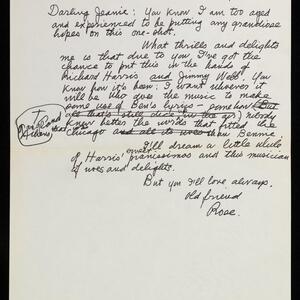 Darling Jeanie: You know I am too aged
and experienced to be putting any grandiose
hopes on this one-shot.
What thrills and delights
me is that due to you I've got the
chance to put this in the hands of
Richard Harris and Jimmy Webb. You
know how it's been: I want whoever it
will be who does the music to make
some use of Ben's lyrics - somehow (But
all that's still dice in the air) nobody
knew better the words that fitted the
Chicago and all its woes than Bennie.
I'll dream a little while
of Harris' pianissimos and this musician
of woes and delights.
But you I'll love always.
Old friend
Rose.